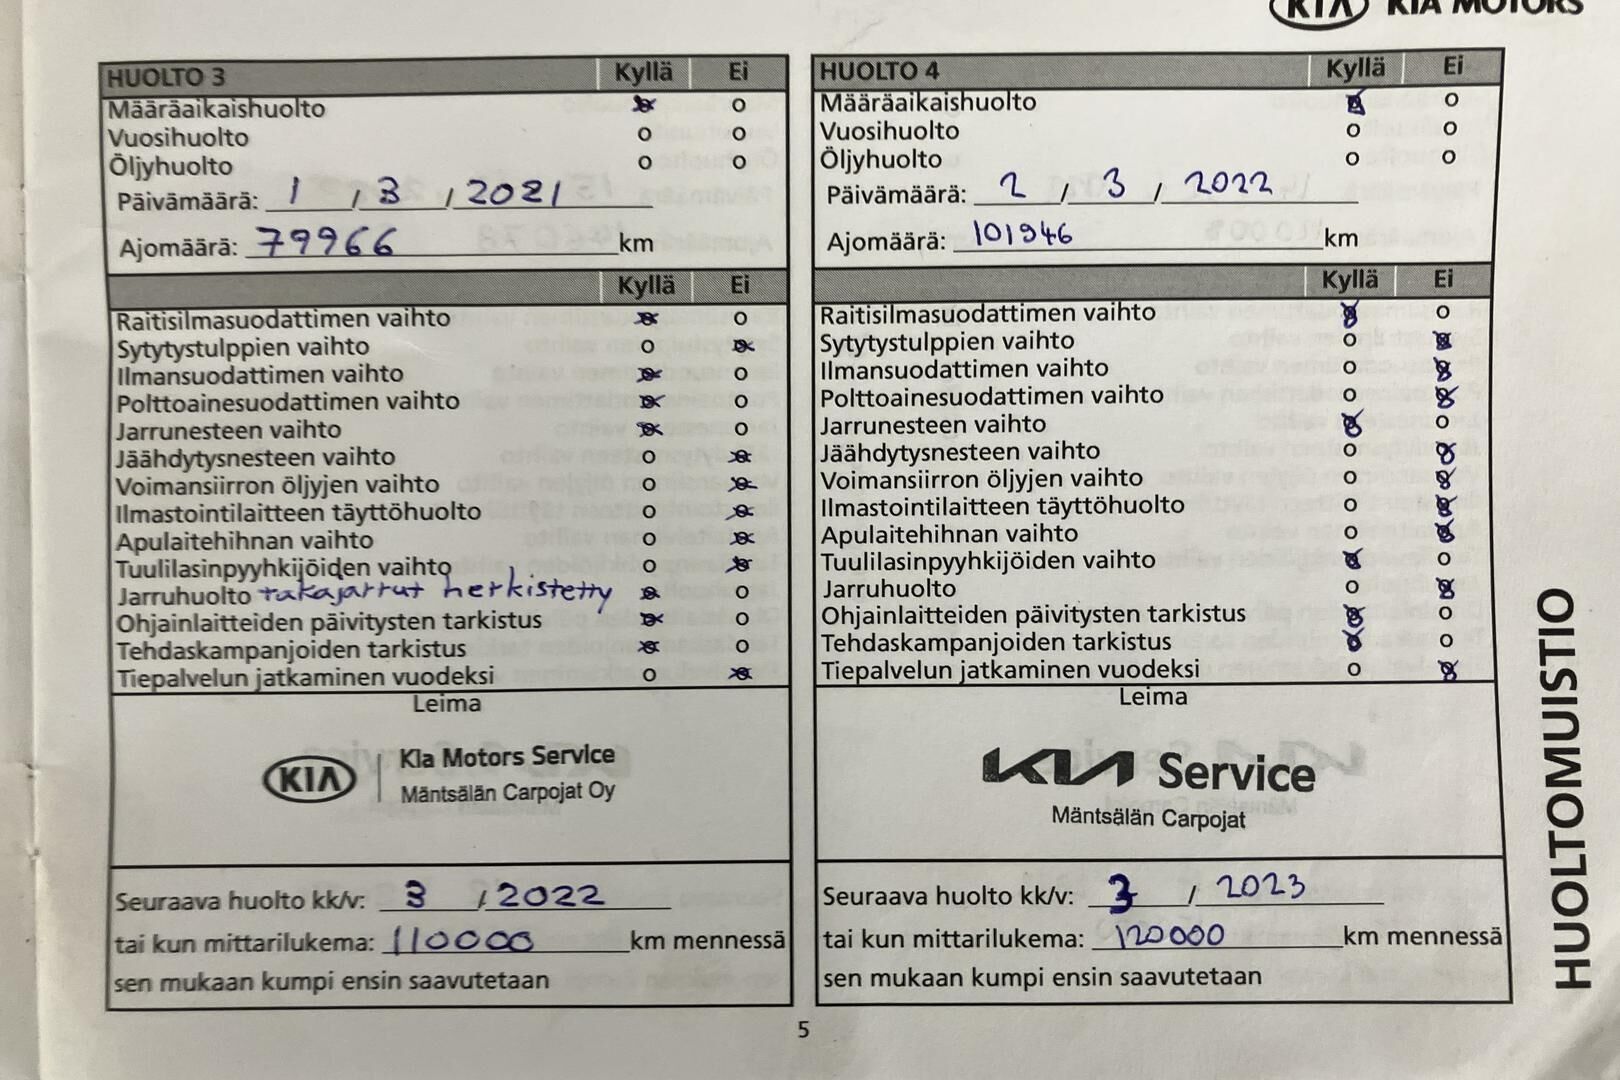 KIA KIA MOTORS
HUOLTO 3 Kyllä Ei
Määräaikaishuolto o o
Vuosihuolto o o
Öljyhuolto o o
Päivämäärä: 1 / 3 / 2021
Ajomäärä: 79966 km
Kyllä Ei
Raitisilmasuodattimen vaihto o o
Sytytystulppien vaihto o o
Ilmansuodattimen vaihto o o
Polttoainesuodattimen vaihto o o
Jarrunesteen vaihto o o
Jäähdytysnesteen vaihto o o
Voimansiirron öljyjen vaihto o o
Ilmastointilaitteen täyttöhuolto o o
Apulaitehihnan vaihto o o
Tuulilasinpyyhkijöiden vaihto o o
Jarruhuolto takajarrut herkistetty o o
Ohjainlaitteiden päivitysten tarkistus o o
Tehdaskampanjoiden tarkistus o o
Tiepalvelun jatkaminen vuodeksi o o
Leima
KIA Kia Motors Service
Mäntsälän Carpojat Oy
Seuraava huolto kk/v: 3 / 2022
tai kun mittarilukema: 110000 km mennessä
sen mukaan kumpi ensin saavutetaan
HUOLTO 4 Kyllä Ei
Määräaikaishuolto o o
Vuosihuolto o o
Öljyhuolto o o
Päivämäärä: 2 / 3 / 2022
Ajomäärä: 101946 km
Kyllä Ei
Raitisilmasuodattimen vaihto o o
Sytytystulppien vaihto o o
Ilmansuodattimen vaihto o o
Polttoainesuodattimen vaihto o o
Jarrunesteen vaihto o o
Jäähdytysnesteen vaihto o o
Voimansiirron öljyjen vaihto o o
Ilmastointilaitteen täyttöhuolto o o
Apulaitehihnan vaihto o o
Tuulilasinpyyhkijöiden vaihto o o
Jarruhuolto o o
Ohjainlaitteiden päivitysten tarkistus o o
Tehdaskampanjoiden tarkistus o o
Tiepalvelun jatkaminen vuodeksi o o
Leima
KIA Service
Mäntsälän Carpojat
Seuraava huolto kk/v: 3 / 2023
tai kun mittarilukema: 120000 km mennessä
sen mukaan kumpi ensin saavutetaan
HUOLTOMUISTIO
5